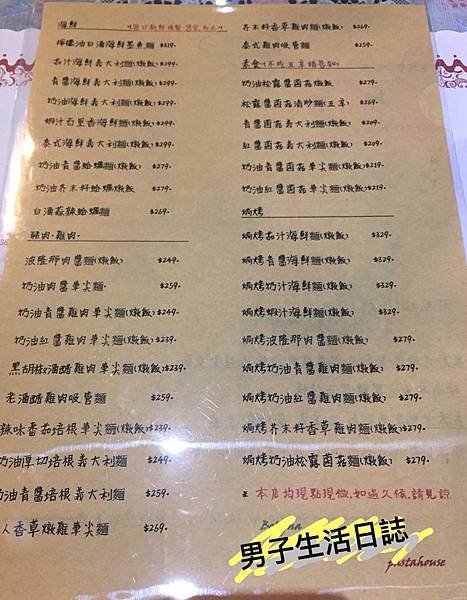 海鮮
檸檬油白酒海鮮墨魚麵 $319.
茄汁海鮮義大利麵(燉飯)$299.
青醬海鮮義大利麵(燉飯)$299.
奶油海鮮義大利麵(燉飯)$299.
蝦汁百里香海鮮麵(燉飯)$299.
泰式海鮮義大利麵(燉飯)$299.
奶油青醬蛤蠣麵(燉飯) $279.
奶油芥末籽蛤蠣燉飯 $279.
白酒蒜辣蛤蠣麵 $269.
豬肉.雞肉.
波隆那肉醬麵(燉飯) $249.
奶油肉醬筆尖麵 $259.
奶油青醬雞肉筆尖麵(燉飯)$239.
奶油紅醬雞肉筆尖麵(燉飯)$239.
黑胡椒酒醋雞肉筆尖麵(燉飯)$239.
老酒醋雞肉吸管麵 $259.
辣味番茄培根筆尖麵(燉飯)$239.
奶油厚切培根義大利麵 $249.
奶油青醬培根義大利麵 $259.
人香草燉雞筆尖麵 $269.
芥末籽香草雞肉麵(燉飯) $269.
泰式雞肉吸管麵 $259.
素食(不吃五辛請告知)
奶油松露醬菌菇燉飯 $279.
松露醬菌菇清炒麵(五辛) $269.
青醬菌菇義大利麵(燉飯) $219.
紅醬菌菇義大利麵(燉飯) $209.
奶油青醬菌菇筆尖麵(燉飯)$219.
奶油紅醬菌菇筆尖麵(燉飯)$219.
焗烤
焗烤茄汁海鮮麵(燉飯) $329.
焗烤青醬海鮮麵(燉飯) $329.
焗烤奶汁海鮮麵(燉飯) $329.
焗烤蝦汁海鮮麵(燉飯) $329.
焗烤波隆那肉醬麵(燉飯) $279.
焗烤奶油青醬雞肉麵(燉飯) $279.
焗烤奶油紅醬雞肉麵(燉飯) $279.
焗烤芥末籽香草雞肉麵(燉飯) $279.
焗烤奶油松露菌菇麵(燉飯) $279.
* 本店均現點現做.如遇久候.請見諒.
男子生活日誌
pastahouse